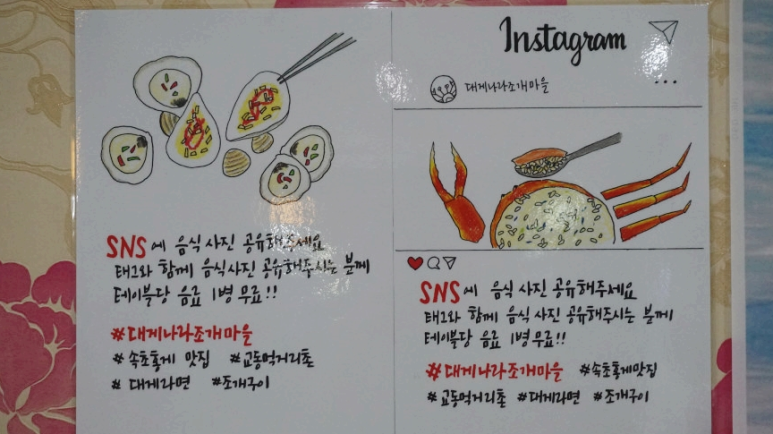 SNS에 음식 사진 공유해주세요
태그와 함께 음식사진 공유해주시는 분께
테이블당 음료 1병 무료!!
#대게나라조개마을
#속초홍게 맛집 #교동먹거리촌
#대게라면 #조개구이
Instagram
대게나라조개마을
SNS에 음식 사진 공유해주세요
태그와 함께 음식 사진 공유해주시는 분께
테이블당 음료 1병 무료!!
#대게나라조개마을 #속초홍게맛집
#교동먹거리촌 #대게라면 #조개구이